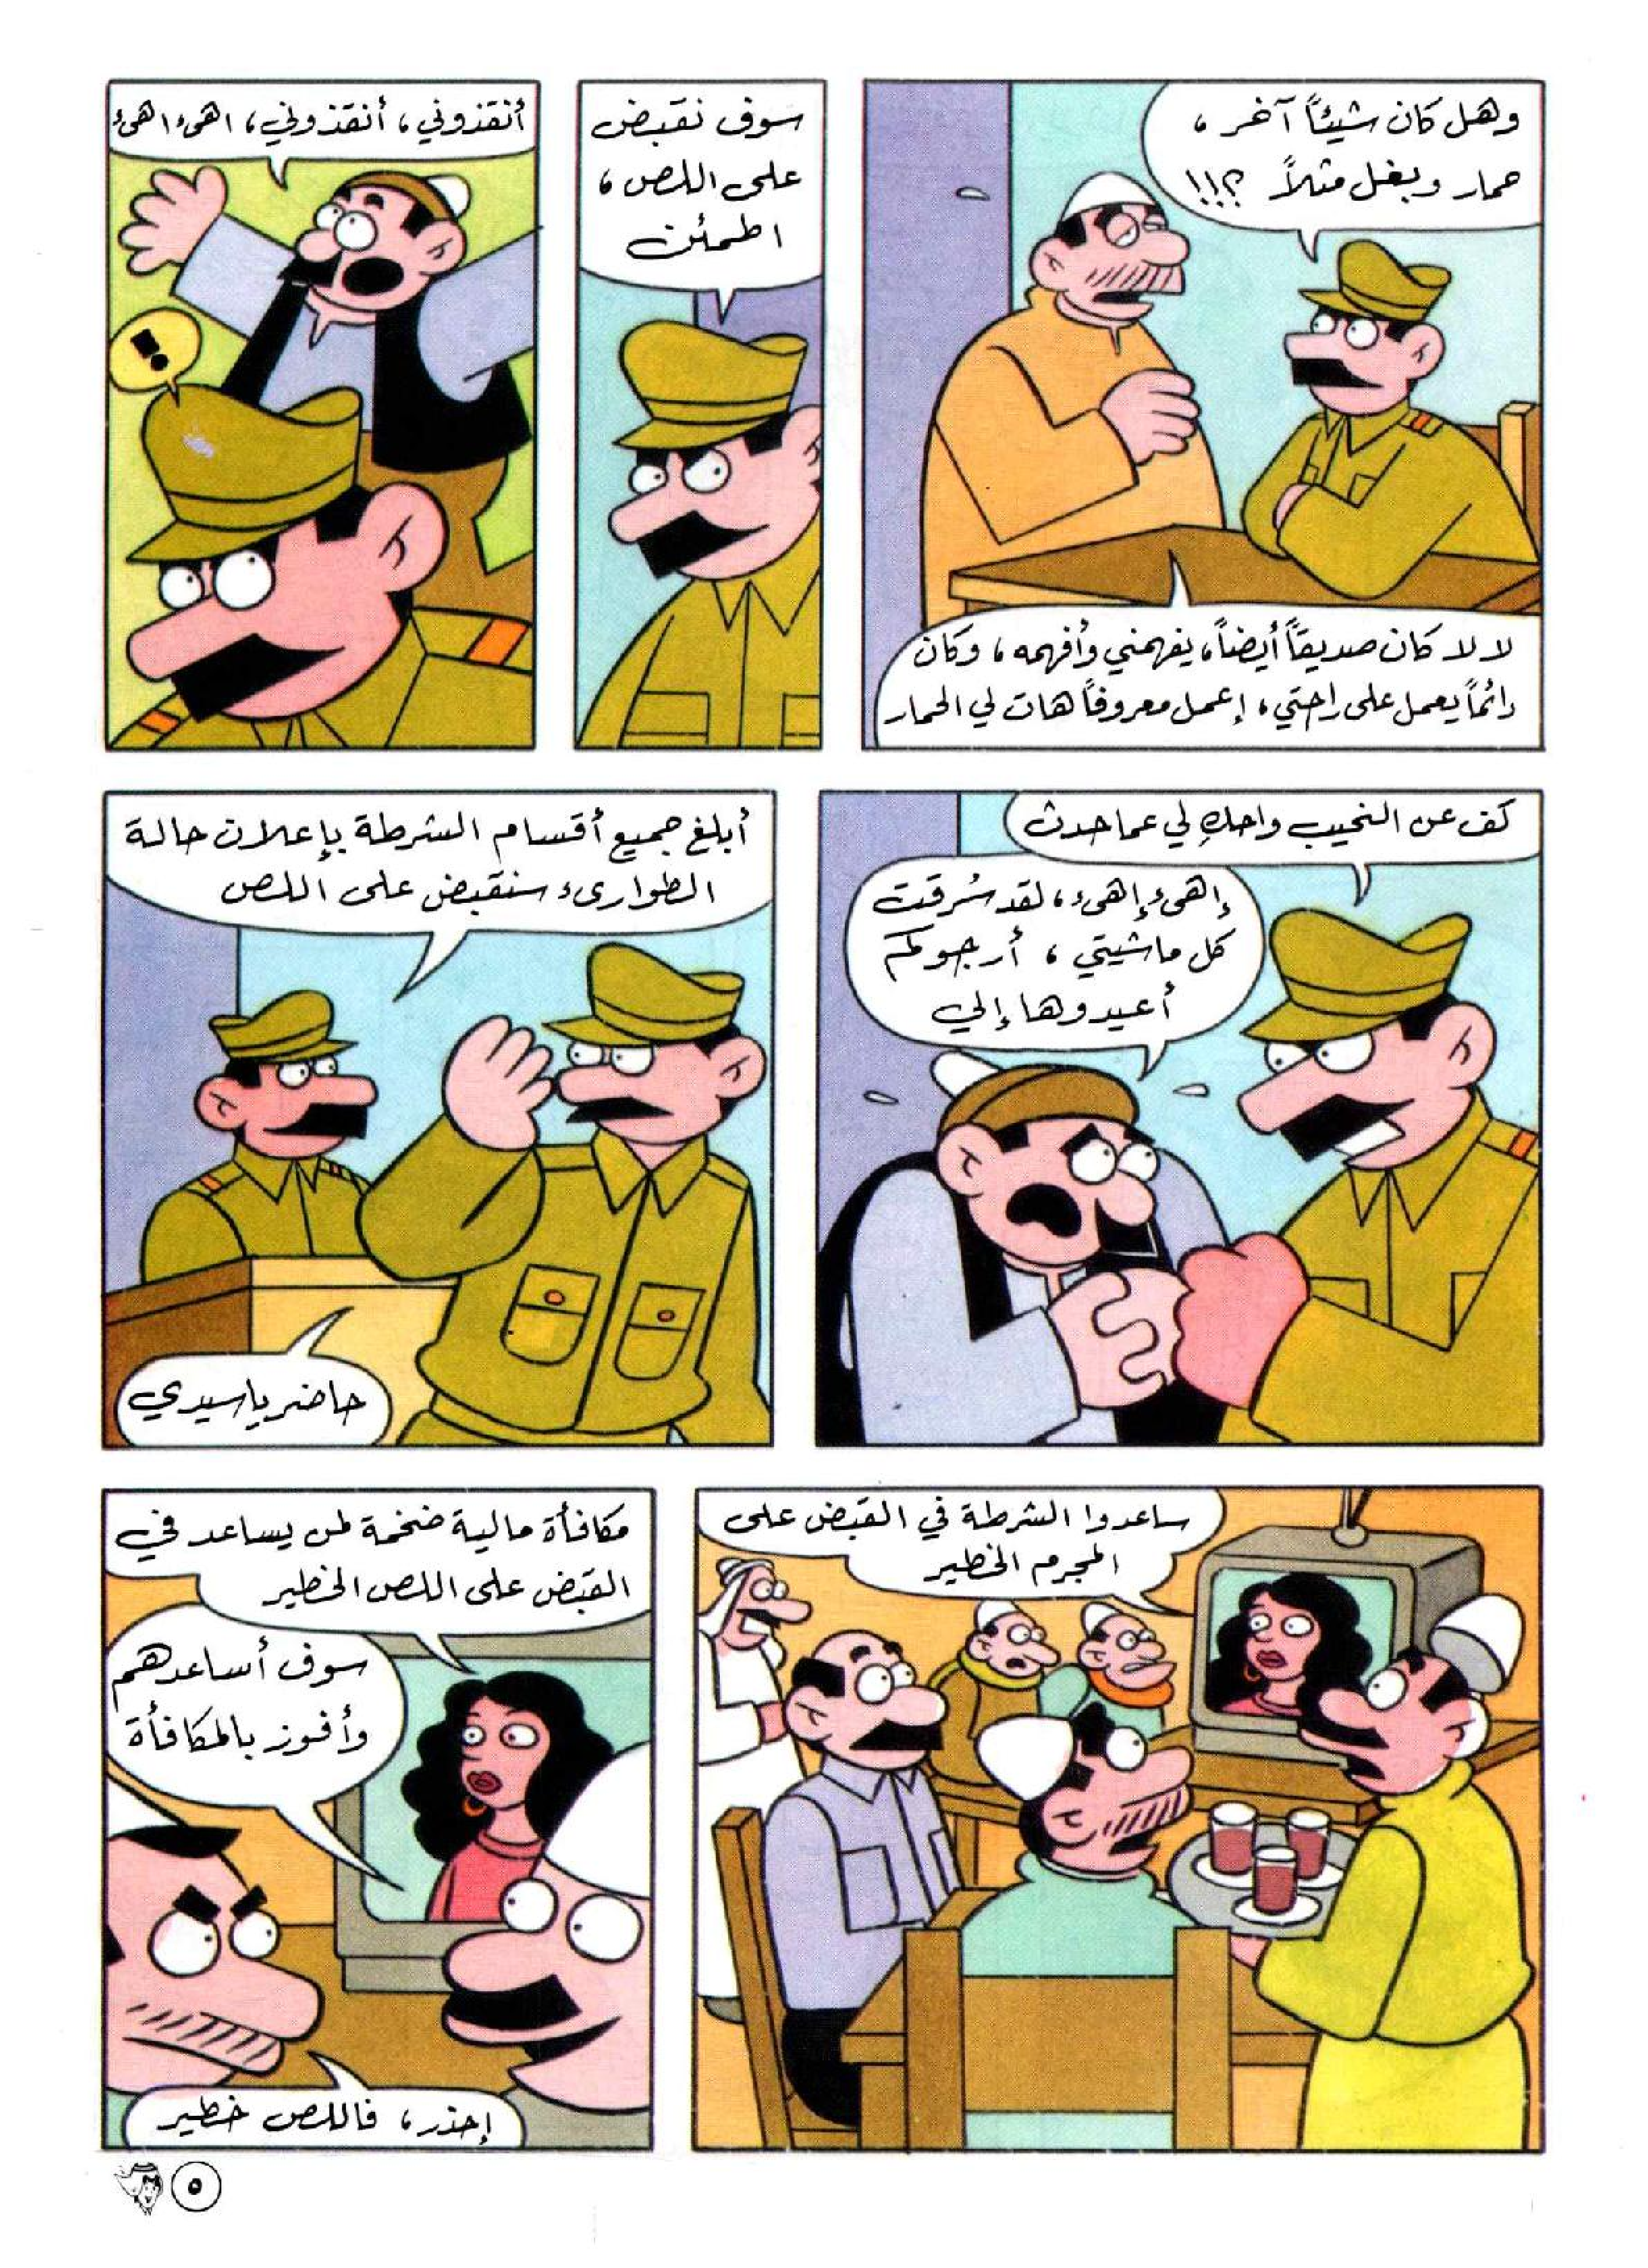 وهل كان شيئاً آخر،
حمار وبغل مثلاً ؟!!
لا لا كان صديقاً أيضاً، يفهمني وأفهمه، وكان
دائماً يعمل على راحتي، إعمل معروفاً هات لي الحمار
سوف نقبض
على اللص،
اطمئن
أنقذوني، أنقذوني، اهىء اهىء
!
كف عن النحيب واحكِ لي عما حدث
إهىء إهىء، لقد سُرقت
كل ماشيتي، أرجوكم
أعيدوها إلي
أبلغ جميع أقسام الشرطة بإعلان حالة
الطوارىء سنقبض على اللص
حاضر يا سيدي
ساعدوا الشرطة في القبض على
المجرم الخطير
مكافأة مالية ضخمة لمن يساعد في
القبض على اللص الخطير
سوف أساعدهم
وأفوز بالمكافأة
إحذر، فاللص خطير
٥